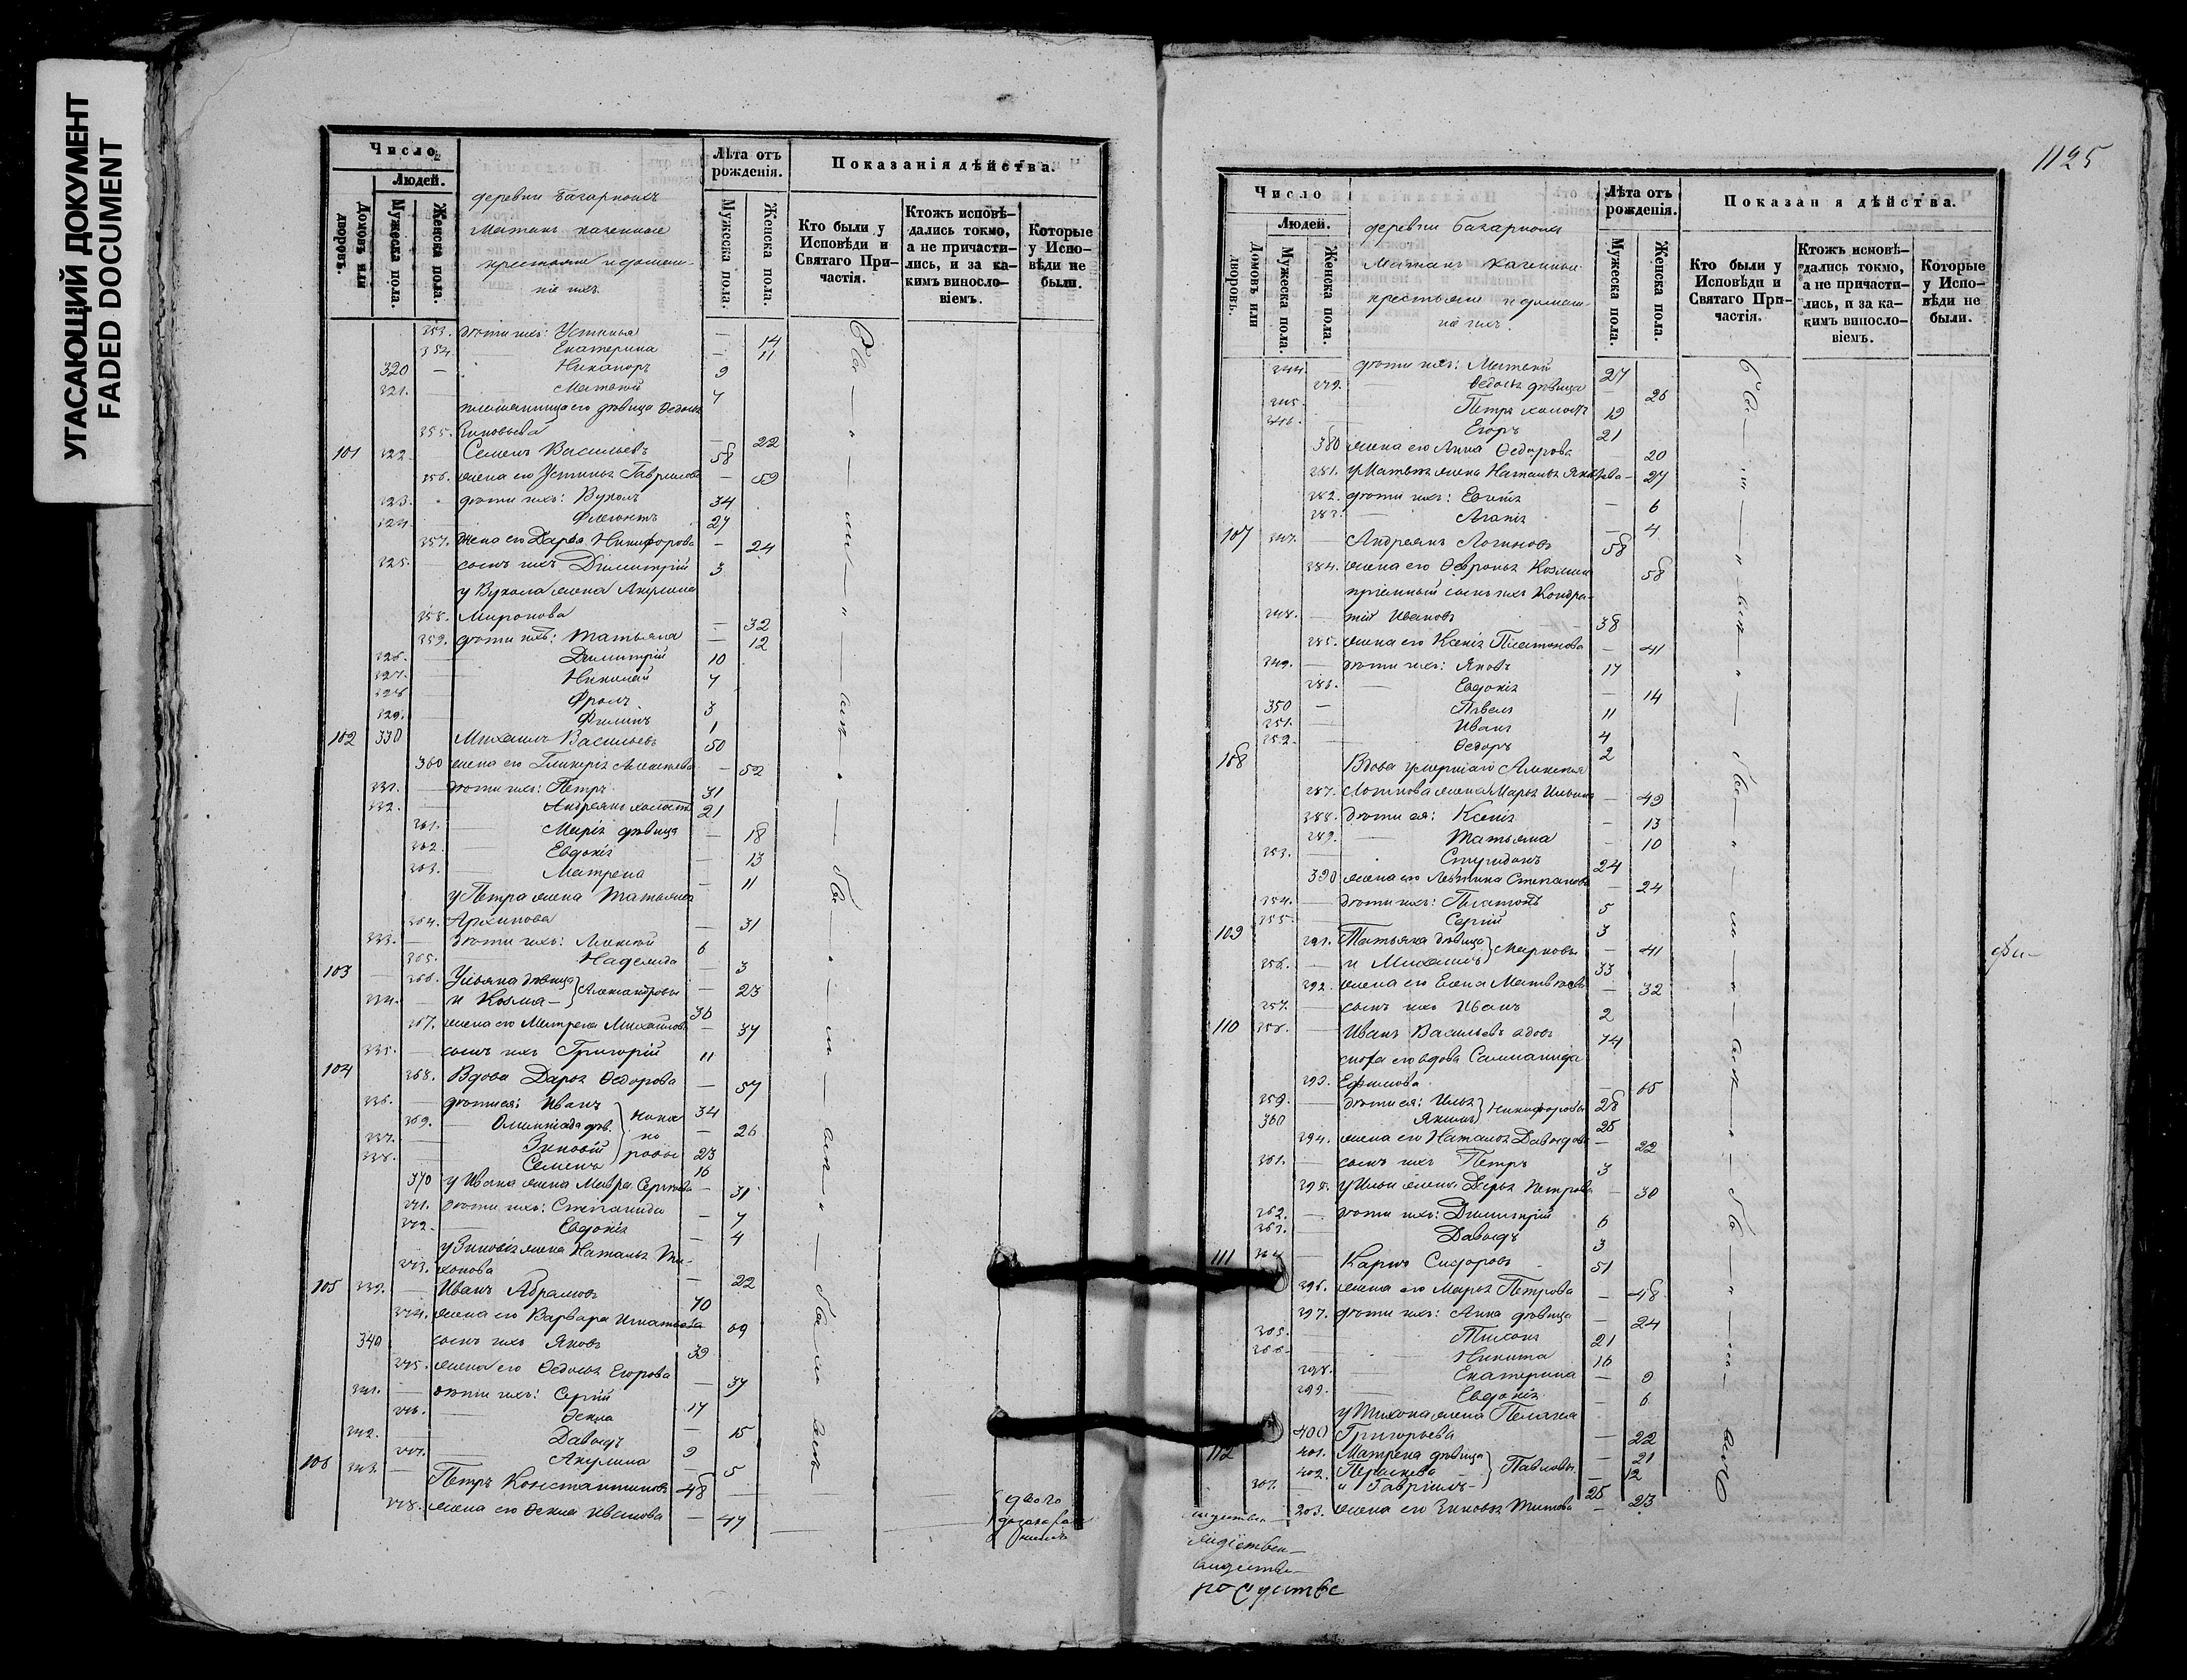 УГАСАЮЩИЙ ДОКУМЕНТ
FADED DOCUMENT
Число
Людей.
Домовъ или дворовъ.
Мужеска пола.
Женска пола.
деревни
казенные
крестьяне и домаш-
ніе ихъ.
Лѣта отъ рожденія.
Мужеска пола.
Женска пола.
Показанія дѣйства.
Кто были у Исповѣди и Святаго При-частія.
Ктожъ исповѣ-дались токмо, а не причасти-лись, и за ка-кимъ винословіемъ.
Которые у Испо-вѣди не были.
353. дѣти ихъ: Устинья — 14
354. Екатерина — 11
320 — Никаноръ 9
321. Матвѣй 7
племянница его дѣвица Ѳедосья
355. Зиновьева — 22
101 322. Семенъ Васильевъ 58
356. жена его Устинья Гаврилова — 59
323. дѣти ихъ: Вуколъ 34
324. Флегонтъ 27
357. жена его Дарья Никифорова — 24
325. сынъ ихъ Димитрій 3
у Вукола жена Акулина
358. Миронова — 32
359. дѣти ихъ: Татьяна — 12
326. Димитрій 10
327. Николай 7
328. Фролъ 3
329. Филипъ 1
102 330 Михаилъ Васильевъ 50
360 жена его Гликерія Алексѣева — 52
331. дѣти ихъ: Петръ 31
332. Андреянъ холостъ 21
361. Марія дѣвица — 18
362. Евдокія — 13
363. Матрена — 11
у Петра жена Татьяна
364. Архипова — 31
333. дѣти ихъ: Алексѣй 6
365. Надежда — 3
103 366. Ульяна дѣвица — 23
334. и Козма — Александровы 36
367. жена его Матрена Михайлова — 37
335. сынъ ихъ Григорій 11
104 368. Вдова Дарья Ѳедорова — 57
336. дѣти ея: Иванъ 34
369. Олимпіада дѣв. — 26
337. Зиновій 23
338. Семенъ 16
Никаноровы
370 у Ивана жена Мавра Сергѣева — 31
371. дѣти ихъ: Степанида — 7
372. Евдокія — 4
у Зиновія жена Наталья Ти-
373. хонова — 22
105 339. Иванъ Абрамовъ 70
374. жена его Варвара Игнатьева 69
340 сынъ ихъ Яковъ 39
375. жена его Ѳедосья Егорова — 37
341. дѣти ихъ: Сергій 17
376. Ѳекла — 15
342. Давыдъ 9
377. Акулина — 5
106 343. Петръ Константиновъ 48 —
378. жена его Ѳекла Иванова — 47
1125
Число
Людей.
Домовъ или дворовъ.
Мужеска пола.
Женска пола.
деревни
казенные
крестьяне и домаш-
ніе ихъ.
Лѣта отъ рожденія.
Мужеска пола.
Женска пола.
Показан я дѣйства.
Кто были у Исповѣди и Святаго При-частія.
Ктожъ исповѣ-дались токмо, а не причасти-лись, и за ка-кимъ винословіемъ.
Которые у Испо-вѣди не были.
344. дѣти ихъ: Матвѣй 27
379. Ѳедосья дѣвица — 26
345. Петръ холостъ 19
346. Егоръ 21
380 жена его Анна Ѳедорова — 20
381. у Матвѣя жена Наталья Яковлева — 27
382. дѣти ихъ: — 6
383. Агапія — 4
107 347. Андреянъ Логиновъ 58
384. жена его Ѳевронья Козмина 58
пріемный сынъ ихъ Кондра-
348. тій Ивановъ 38
385. жена его Ксенія Платонова — 41
349. дѣти ихъ: Яковъ 17
386. Евдокія — 14
350 — Павелъ 11
351. Иванъ 4
352. Ѳедоръ 2
108 Вдова умершаго Алексѣя
387. Логинова жена Марья Ильина — 49
388. дѣти ея: Ксенія — 13
389. Татьяна — 10
353. Спиридонъ 24
390 жена его Степанова — 24
354. дѣти ихъ: Платонъ 5
355. Сергій 3
109 391. Татьяна дѣвица — 41
356. и Михаилъ Марковы 33
392. жена его Елена Матвѣева — 32
357. сынъ ихъ Иванъ 2
110 358. Иванъ Васильевъ вдовъ 74
сноха его вдова Саломанида
393. Ефимова — 65
359. дѣти ея: Илья 28
360 Якимъ Никифоровы 25
394. жена его Наталья Давыдова — 22
361. сынъ ихъ Петръ 3
395. у Ильи жена Дарья Петрова — 30
362. дѣти ихъ: Димитрій 6
363. Давыдъ 3
111 364 Карпъ Сидоровъ 51
396. жена его Марья Петрова — 48
397. дѣти ихъ: Анна дѣвица — 24
365. Тихонъ 21
366. Никита 16
398. Екатерина — 9
399. Евдокія — 6
у Тихона жена Пелагея
400 Григорьева — 22
112 401. Матрена дѣвица — 21
402. Параскева — 12
367. и Гавріилъ — Павловы 25
403. жена его Зиновья Титова — 23